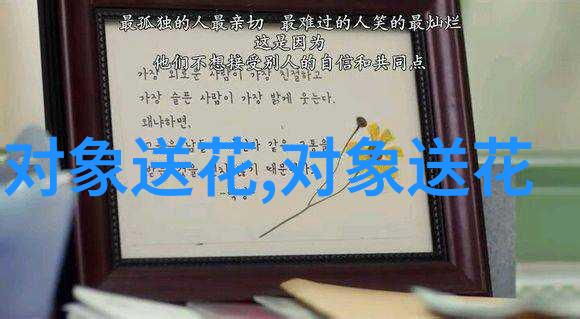 最孤独的人最亲切 最难过的人笑的最灿烂
这是因为
他们不想接受别人的自信和共同点
가장 외로운 사람이 가장 친절하고
가장 슬픈 사람이 가장 밝게 웃는다.
왜냐하면,
같은 고통을
때문
对象送花,对象送花